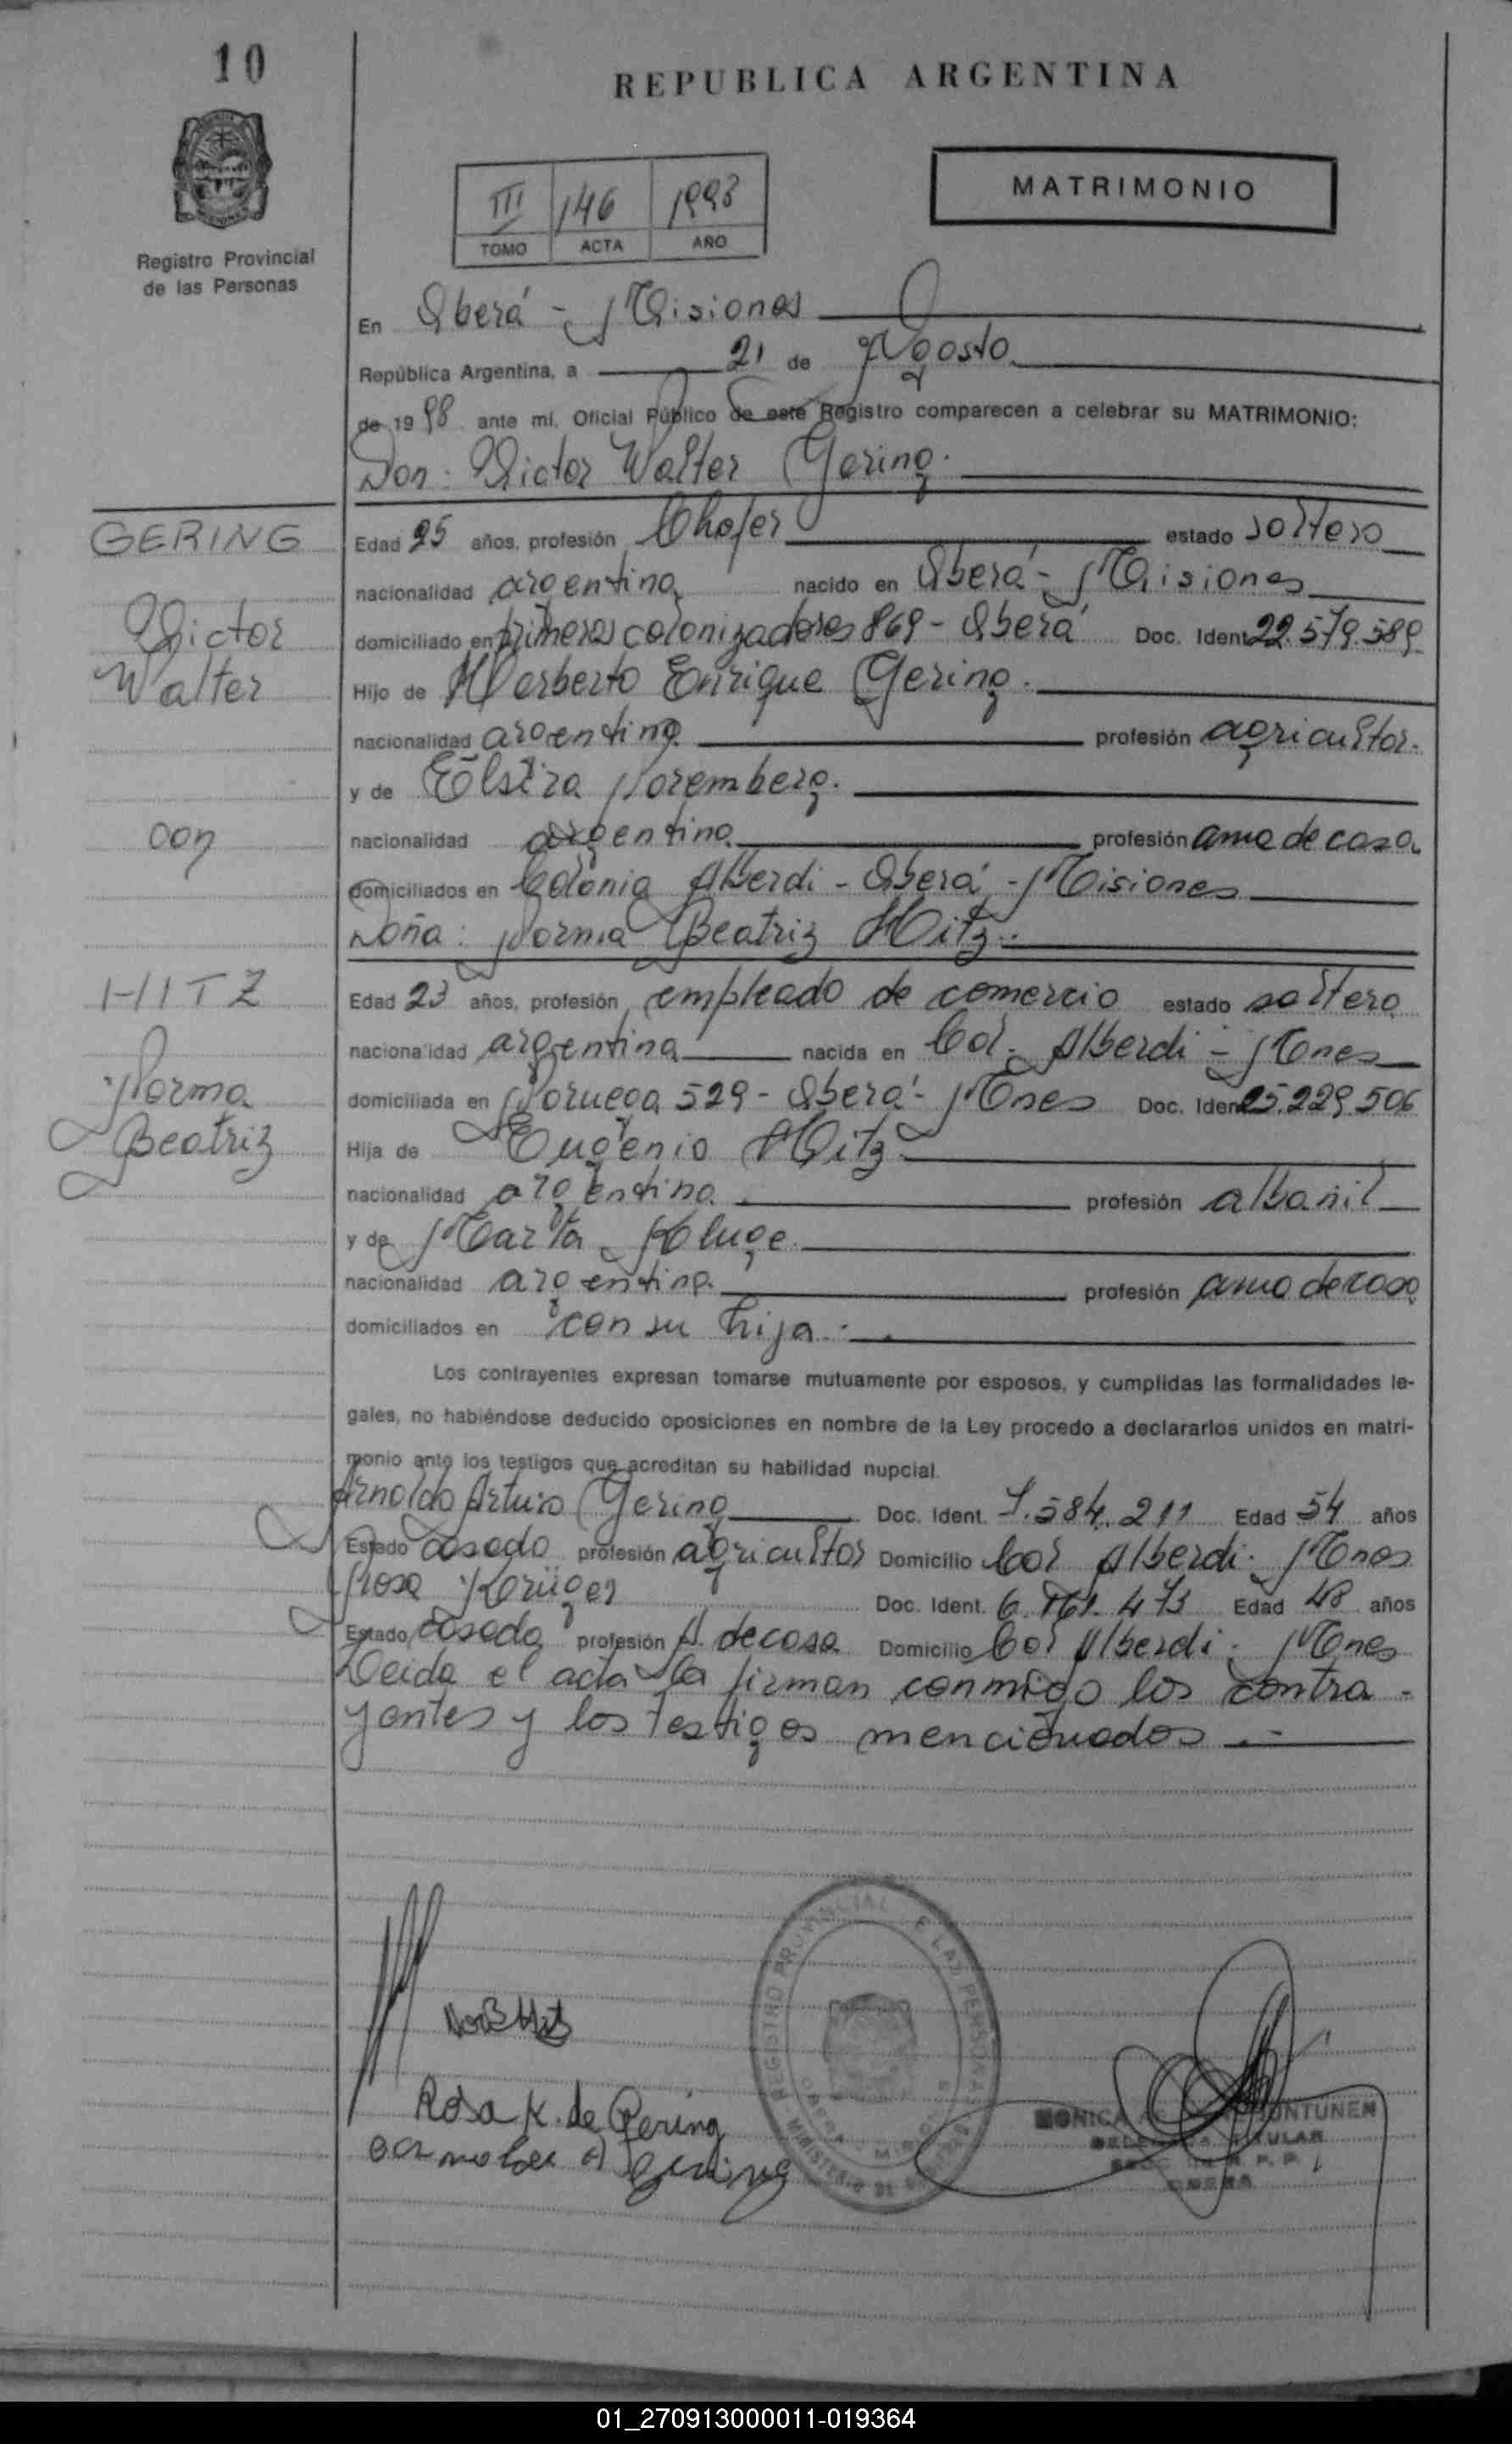 10
REPUBLICA ARGENTINA
MATRIMONIO
III 146 1998
TOMO ACTA AÑO
Registro Provincial
de las Personas
En Oberá - Misiones
República Argentina, a 21 de Agosto
de 19 98 ante mí, Oficial Público de este Registro comparecen a celebrar su MATRIMONIO:
Don: Victor Walter Gering.
GERING
Edad 25 años, profesión Chofer estado soltero
nacionalidad argentina nacido en Oberá - Misiones
Victor
domiciliado en primeros colonizadores 869 - Oberá Doc. Ident 22.579.589
Walter
Hijo de Herberto Enrique Gering.
nacionalidad argentina profesión agricultor.
y de Elsira Noremberg.
con
nacionalidad argentina profesión ama de casa.
domiciliados en Colonia Alberdi - Oberá - Misiones
Doña: Norma Beatriz Hitz.
HITZ
Edad 23 años, profesión empleado de comercio estado soltera
nacionalidad argentina nacida en Col. Alberdi - Mnes
Norma
domiciliada en Noruega 529 - Oberá - Mnes Doc. Iden 25.229.506
Beatriz
Hija de Eugenio Hitz
nacionalidad argentina profesión albañil
y de Marta Kluge.
nacionalidad argentina profesión ama de casa
domiciliados en con su hija.
Los contrayentes expresan tomarse mutuamente por esposos, y cumplidas las formalidades le-
gales, no habiéndose deducido oposiciones en nombre de la Ley procedo a declararlos unidos en matri-
monio ante los testigos que acreditan su habilidad nupcial.
Arnoldo Arturo Gering Doc. Ident. 7.584.211 Edad 54 años
Estado casado profesión agricultor Domicilio Col Alberdi. Mnes
Rosa Krüger Doc. Ident. 6.161.473 Edad 48 años
Estado casada profesión A. de casa Domicilio Col Alberdi. Mnes
Leida el acta la firman conmigo los contra-
yentes y los testigos mencionados.
REGISTRO PROVINCIAL DE LAS PERSONAS
Rosa K. de Gering
Arnoldo A Gering
MONICA
TITULAR
OBERA
01_270913000011-019364